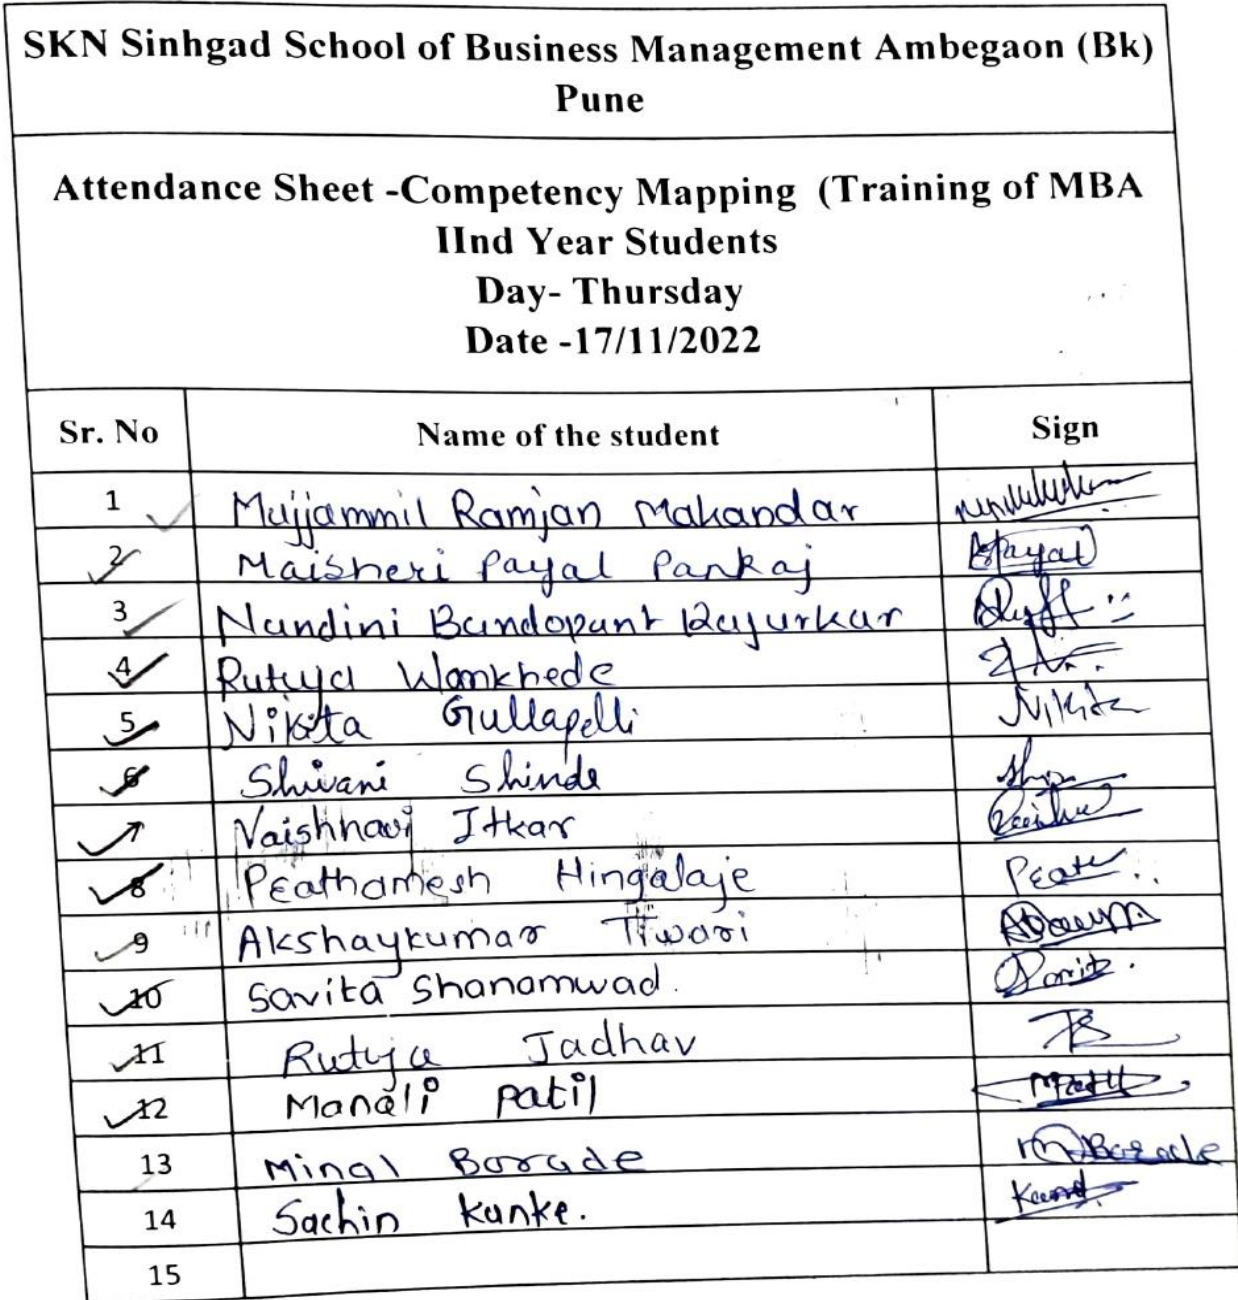 SKN Sinhgad School of Business Management Ambegaon (Bk)
Pune
Attendance Sheet -Competency Mapping (Training of MBA
IInd Year Students
Day- Thursday
Date -17/11/2022
Sr. No Name of the student Sign
1 Mujjammil Ramjan Makandar
2 Maisheri Payal Pankaj Payal
3 Nandini Bandopant Rajurkar
4 Rutuja Wankhede
5 Nikita Gullapelli Nikita
6 Shivani Shinde
7 Vaishnavi Itkar
8 Prathamesh Hingalaje
9 Akshaykumar Tiwari
10 Savita Shanamwad.
11 Rutuja Jadhav
12 Manali Patil
13 Minal Borade MBorade
14 Sachin Kanke.
15